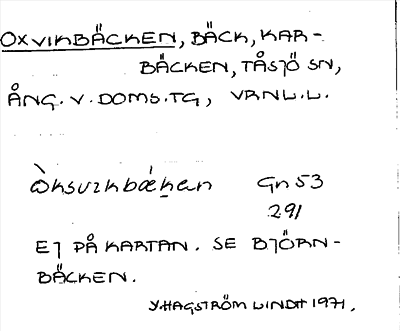 OXVIKBÄCKEN, BÄCK, KAR-
BÄCKEN, TÅSJÖ SN,
ÅNG. V. DOMS. TG, VRNL.L.
òksvɩkbǽkan Gn 53
291
EJ PÅ KARTAN. SE BJÖRN-
BÄCKEN.
Y. HAGSTRÖM LINDH 1971.